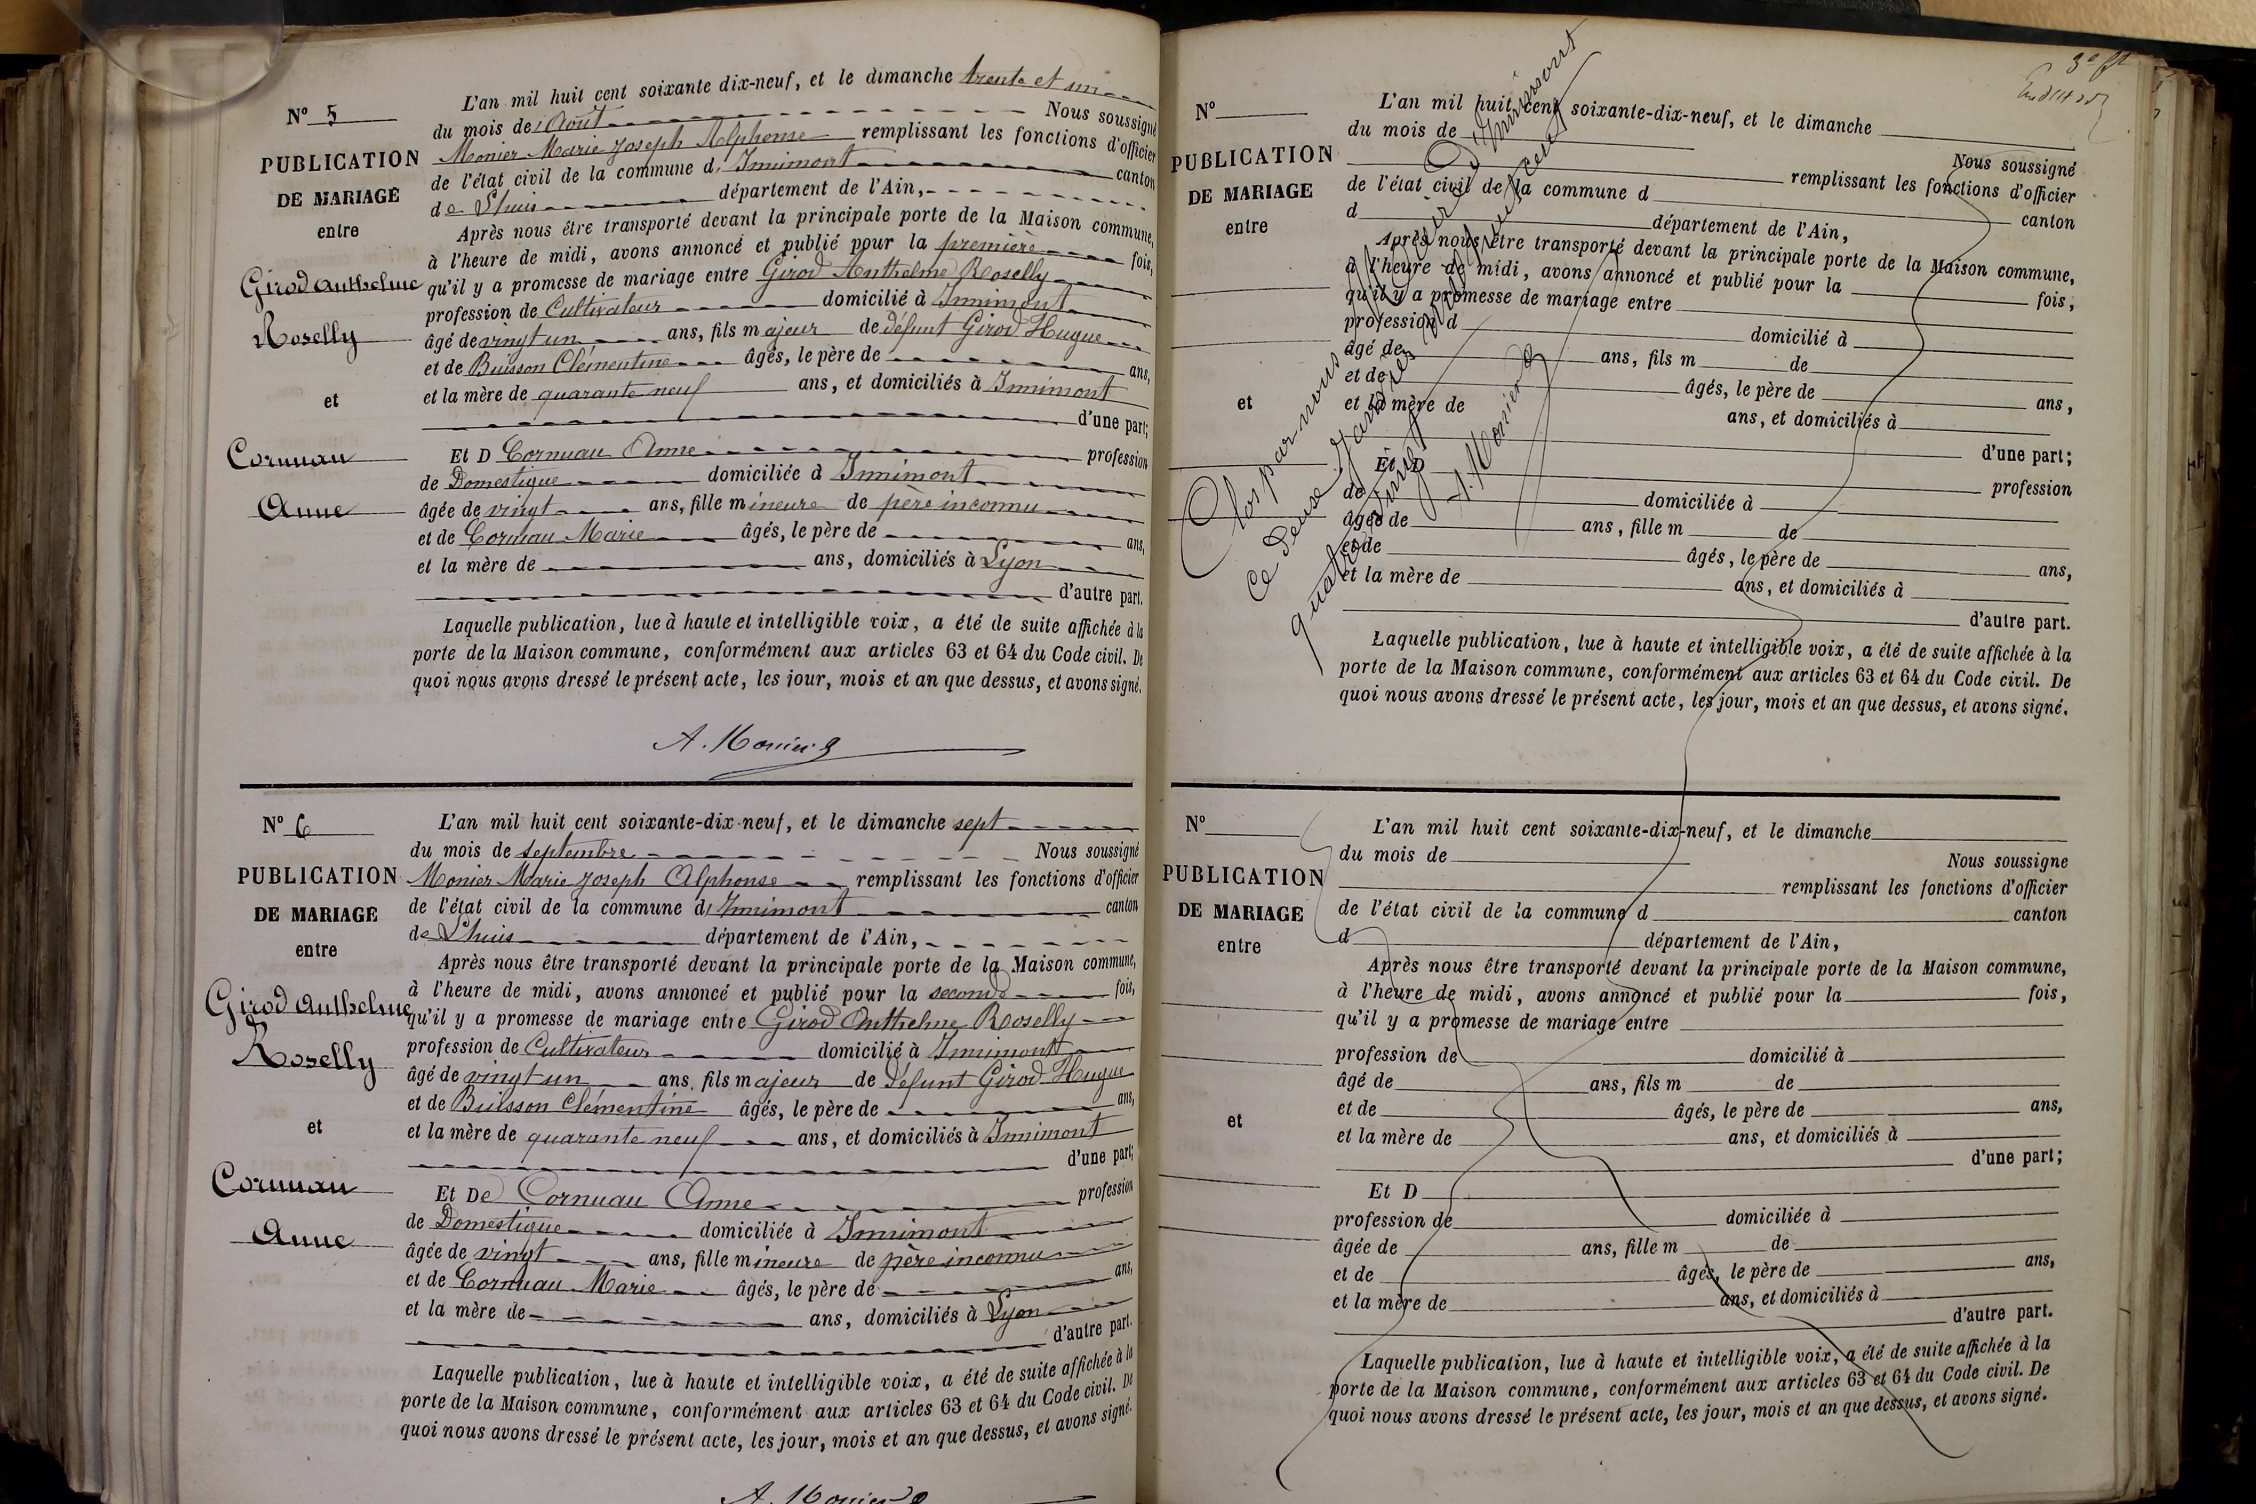 N° 5
PUBLICATION
DE MARIAGE
entre
Girod Anthelme
Roselly
et
Cornuau
Anne
L'an mil huit cent soixante dix-neuf, et le dimanche trente et un
du mois de Août Nous soussigné
Monier Marie Joseph Alphonse remplissant les fonctions d'officier
de l'état civil de la commune d'Innimont canton
de Lhuis département de l'Ain,
Après nous être transporté devant la principale porte de la Maison commune,
à l'heure de midi, avons annoncé et publié pour la première fois,
qu'il y a promesse de mariage entre Girod Anthelme Roselly
profession de Cultivateur domicilié à Innimont
âgé de vingt un ans, fils majeur de défunt Girod Hugue
et de Buisson Clémentine âgés, le père de ans,
et la mère de quarante neuf ans, et domiciliés à Innimont
d'une part;
Et D Cornuau Anne profession
de Domestique domiciliée à Innimont
âgée de vingt ans, fille mineure de père inconnu
et de Cornuau Marie âgés, le père de ans,
et la mère de ans, domiciliés à Lyon
d'autre part.
Laquelle publication, lue à haute et intelligible voix, a été de suite affichée à la
porte de la Maison commune, conformément aux articles 63 et 64 du Code civil. De
quoi nous avons dressé le présent acte, les jour, mois et an que dessus, et avons signé.
A. Monier
N° 6
PUBLICATION
DE MARIAGE
entre
Girod Anthelme
Roselly
et
Cornuau
Anne
L'an mil huit cent soixante-dix-neuf, et le dimanche sept
du mois de septembre Nous soussigné
Monier Marie Joseph Alphonse remplissant les fonctions d'officier
de l'état civil de la commune d'Innimont canton
de Lhuis département de l'Ain,
Après nous être transporté devant la principale porte de la Maison commune,
à l'heure de midi, avons annoncé et publié pour la seconde fois,
qu'il y a promesse de mariage entre Girod Anthelme Roselly
profession de Cultivateur domicilié à Innimont
âgé de vingt un ans, fils majeur de défunt Girod Hugue
et de Buisson Clémentine âgés, le père de ans,
et la mère de quarante neuf ans, et domiciliés à Innimont
d'une part;
Et De Cornuau Anne profession
de Domestique domiciliée à Innimont
âgée de vingt ans, fille mineure de père inconnu
et de Cornuau Marie âgés, le père de ans,
et la mère de ans, domiciliés à Lyon
d'autre part.
Laquelle publication, lue à haute et intelligible voix, a été de suite affichée à la
porte de la Maison commune, conformément aux articles 63 et 64 du Code civil. De
quoi nous avons dressé le présent acte, les jour, mois et an que dessus, et avons signé.
A. Monier
N°
PUBLICATION
DE MARIAGE
entre
et
L'an mil huit cent soixante-dix-neuf, et le dimanche
du mois de Nous soussigné
remplissant les fonctions d'officier
de l'état civil de la commune d canton
d département de l'Ain,
Après nous être transporté devant la principale porte de la Maison commune,
à l'heure de midi, avons annoncé et publié pour la fois,
qu'il y a promesse de mariage entre
profession d domicilié à
âgé de ans, fils m de
et de âgés, le père de ans,
et la mère de ans, et domiciliés à
d'une part;
Et D profession
de domiciliée à
âgée de ans, fille m de
et de âgés, le père de ans,
et la mère de ans, et domiciliés à
d'autre part.
Laquelle publication, lue à haute et intelligible voix, a été de suite affichée à la
porte de la Maison commune, conformément aux articles 63 et 64 du Code civil. De
quoi nous avons dressé le présent acte, les jour, mois et an que dessus, et avons signé.
Clos par nous Maire d'Innimont
ce deux Janvier mil huit cent
quatre vingt
A. Monier
N°
PUBLICATION
DE MARIAGE
entre
et
L'an mil huit cent soixante-dix-neuf, et le dimanche
du mois de Nous soussigne
remplissant les fonctions d'officier
de l'état civil de la commune d canton
d département de l'Ain,
Après nous être transporté devant la principale porte de la Maison commune,
à l'heure de midi, avons annoncé et publié pour la fois,
qu'il y a promesse de mariage entre
profession de domicilié à
âgé de ans, fils m de
et de âgés, le père de ans,
et la mère de ans, et domiciliés à
d'une part;
Et D
profession de domiciliée à
âgée de ans, fille m de
et de âgés, le père de ans,
et la mère de ans, et domiciliés à
d'autre part.
Laquelle publication, lue à haute et intelligible voix, a été de suite affichée à la
porte de la Maison commune, conformément aux articles 63 et 64 du Code civil. De
quoi nous avons dressé le présent acte, les jour, mois et an que dessus, et avons signé.